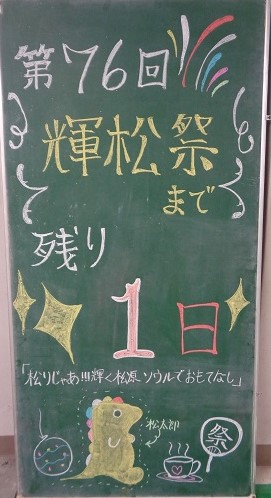 第76回
輝松祭
まで
残り
1日
「松りじゃあ!!!輝く松源ソウルでおもてなし」
松太郎
祭